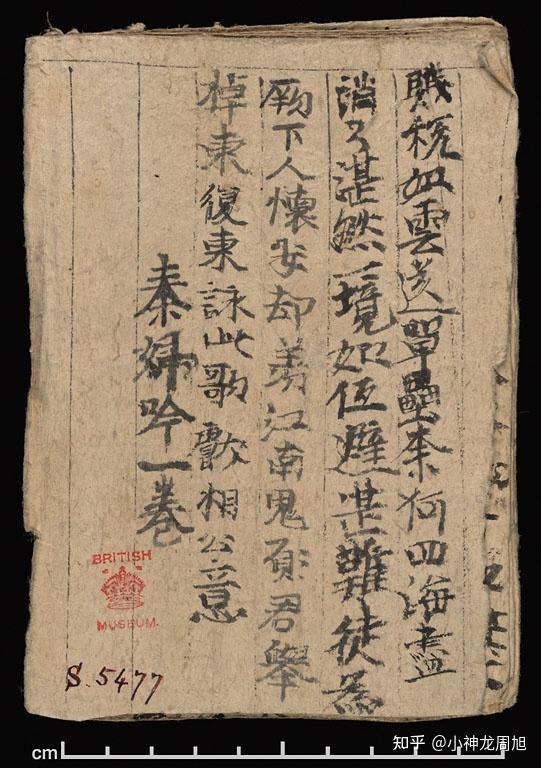 賦税如雲送軍壘奈何四海盡
滔々湛然一境如避難徒為
闕下人懷安却羡江南鬼願君舉
棹東復東詠此歌獻相公意
秦婦吟一卷
BRITISH
MUSEUM.
S. 5477
cm
知乎 @小神龙周旭